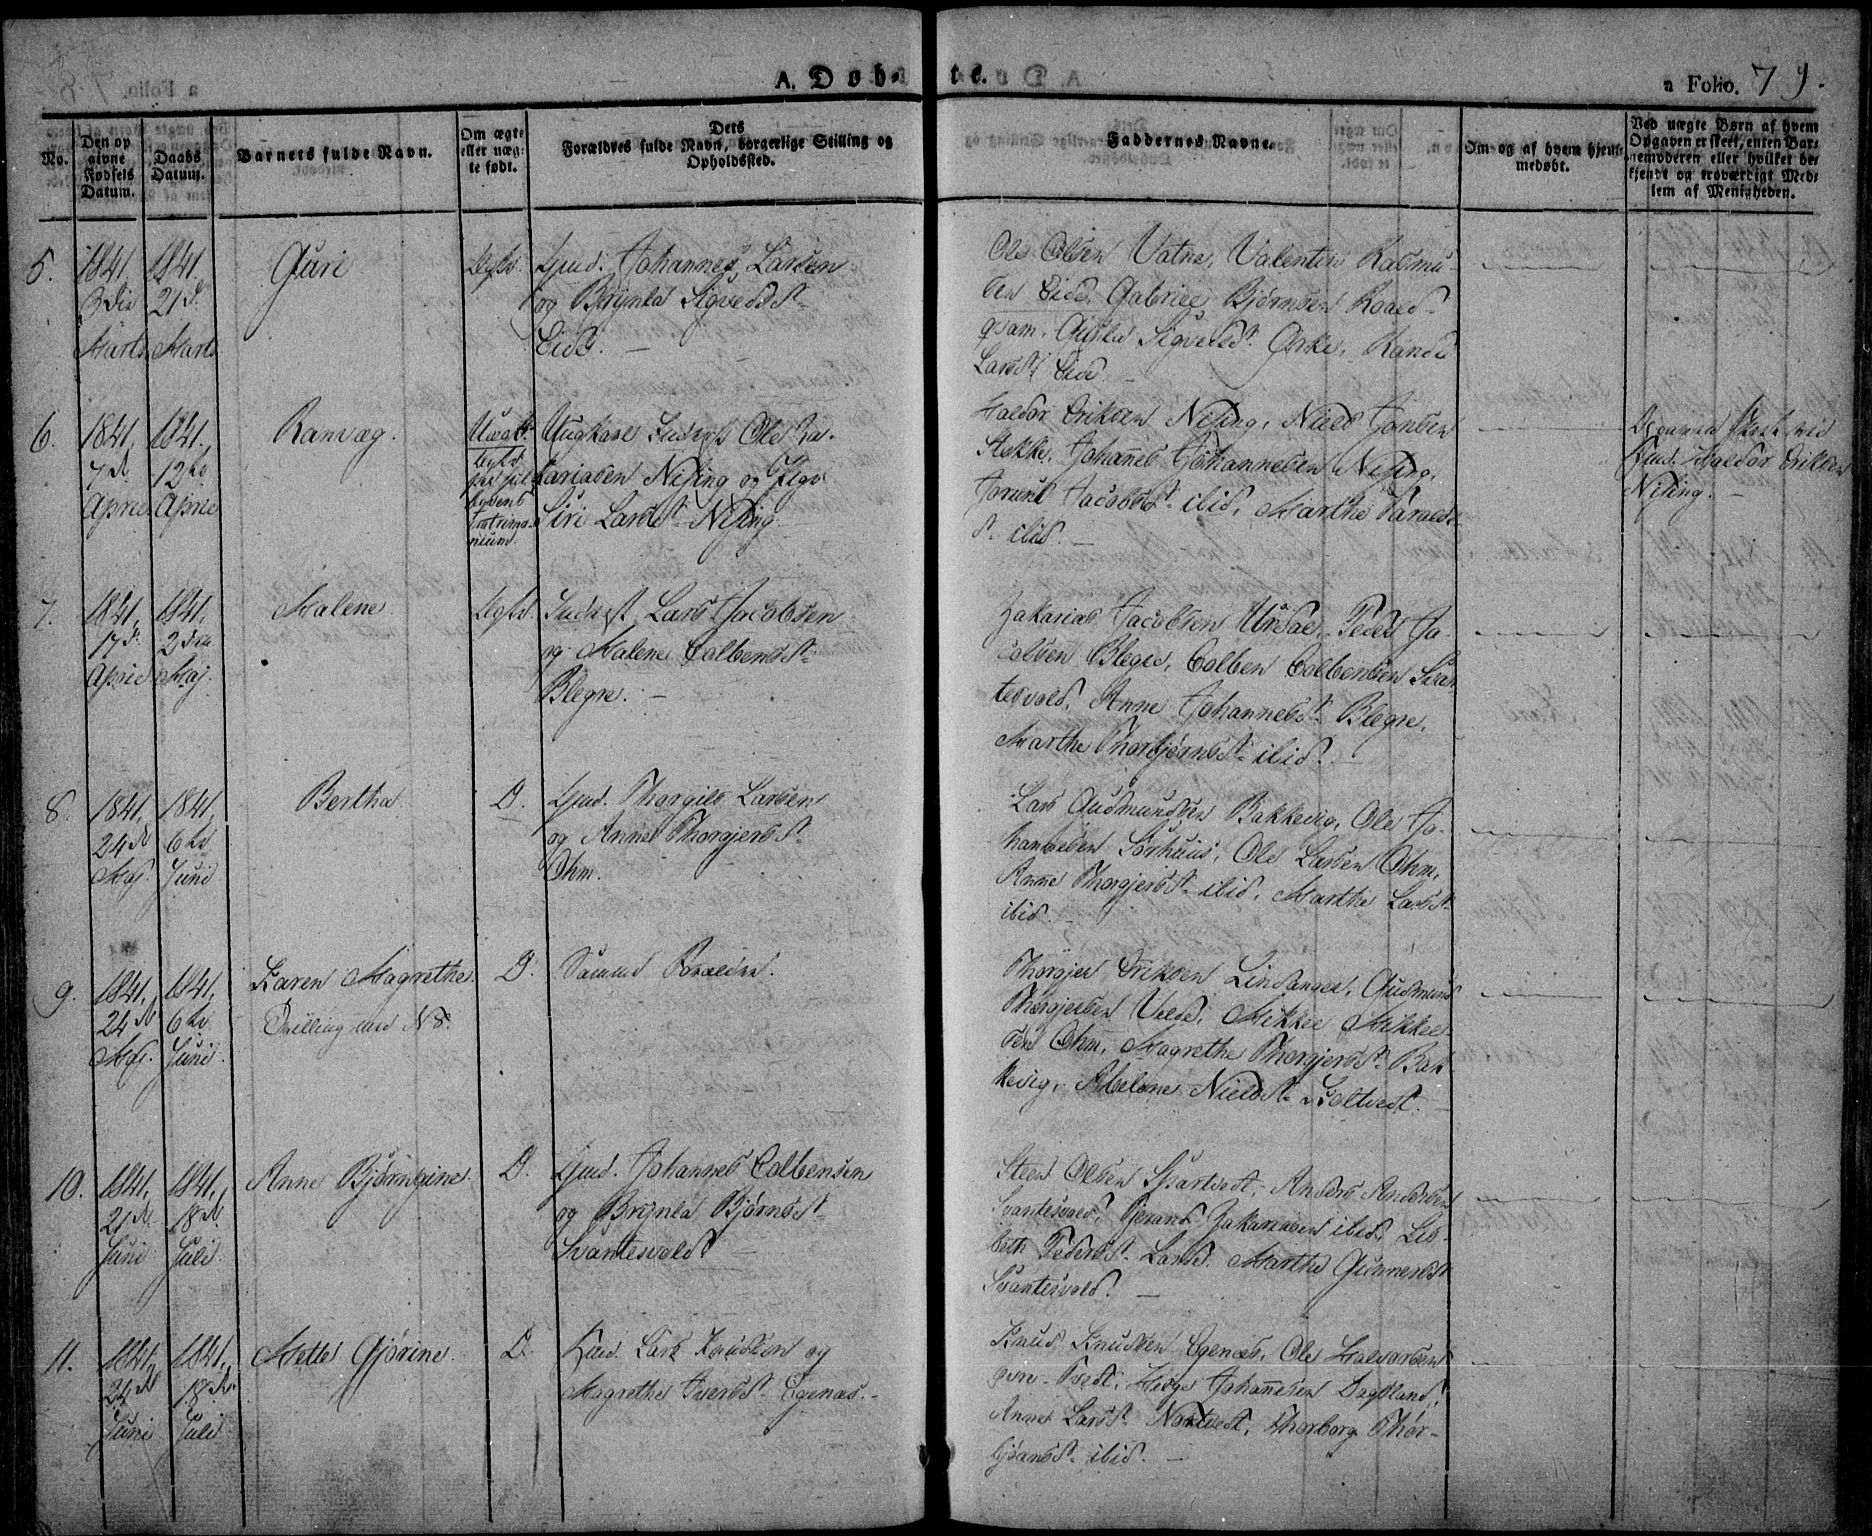 A. Døb- te.
a Folio. 79.
No.
Den op
givne
Fødsels
Datum.
Daabs
Datum.
Barnets fulde Navn.
Om ægte
eller uæg-
te født.
Dets
Forældres fulde Navn, borgerlige Stilling og
Opholdssted.
Faddernes Navne.
Om og af hvem hjem-
medøbt.
Ved uægte Børn af hvem
Opgaven er skeet, enten Bar-
nemoderen eller hvilket be-
kjendt og troværdigt Med-
lem af Menigheden.
5.
1841.
3die
Marts
1841.
21d
Marts
Guri
Ægte.
Gmd. Johannes Larsen
og Brynla Sigvedst
Eide. —
Ole Olsen Vatne, Valentin Rasmu-
sen Eide, Gabriel Bjørnsen
Sigveldst Ørke, Randi
Larsdt Eide. —
6.
1841.
7d
April
1841.
12te
April
Ranvæg.
Uægte
Ungkarl Ole Za-
kariasen Nising og Pige
Siri Larsdt Nising
Haldor Eriksen Nising, Niels Jonsen
Stokke, Johannes Johannesen Nising,
Jorund Jacobsdt ibid, Marthe
ibid. —
Opgaven skeet ved
Gmd. Haldor Eriksen
Nising. —
7.
1841.
17d
April
1841.
2den
Maj.
Malene
Ægte.
Lars Jacobsen
og Malene Colbensdt
Blegre. —
Zakarias Jacobsen Urdal, Peder Ja-
cobsen Blegre, Colben Colbensen Svan-
tesvold, Anne Johannesdt Blegre,
Marthe Thorbjørnsdt ibid.
8.
1841.
24d
Maj.
1841.
6te
Juni
Bertha
D.
Gmd. Thorgils Larsen
og Anne Thorgjersdt
Ohm.
Lars Gudmundsen Bakkevig, Ole Jo-
hannesen Sørhuus, Ole Larsen Ohm,
Anne Thorgjersdt ibid, Marthe Larsdt
ibid. —
9.
1841.
24d
Maj.
1841.
6te
Juni.
Karen Magrethe.
Tvilling med N 8.
D.
Samme Forældre.
Thorgjer Eriksen Lindanger, Gudmund
Thorgjersen Velde, Mikkel Mikkel-
sen Ohm, Magrethe Thorgjersdt Bak-
kevig, Abelone Nielsdt
10.
1841.
21d
Juni
1841.
18d
Juli
Anne Bjørngine.
D.
Gmd. Johannes Colbensen
og Brynla Bjørnsdt
Svantesvold —
Steen Olsen Svartvedt, Anders Andersen
Svantesvold, Tjerand Zakariasen ibid, Lis-
beth Pedersdt Lande, Marthe Gunnersdt
Svantesvold. —
11.
1841,
24d
Juni
1841.
18de
Juli
Mette Gjørine.
D.
Gmd. Lars Knudsen og
Magrethe Iversdt Egenæs. —
Knud Knudsen Egenæs, Ole Halvorsen
Tvedt, Helge Johannesen Dagsland,
Anne Larsdt Nordtvedt, Thorborg Thor-
bjørnsdt ibid. —